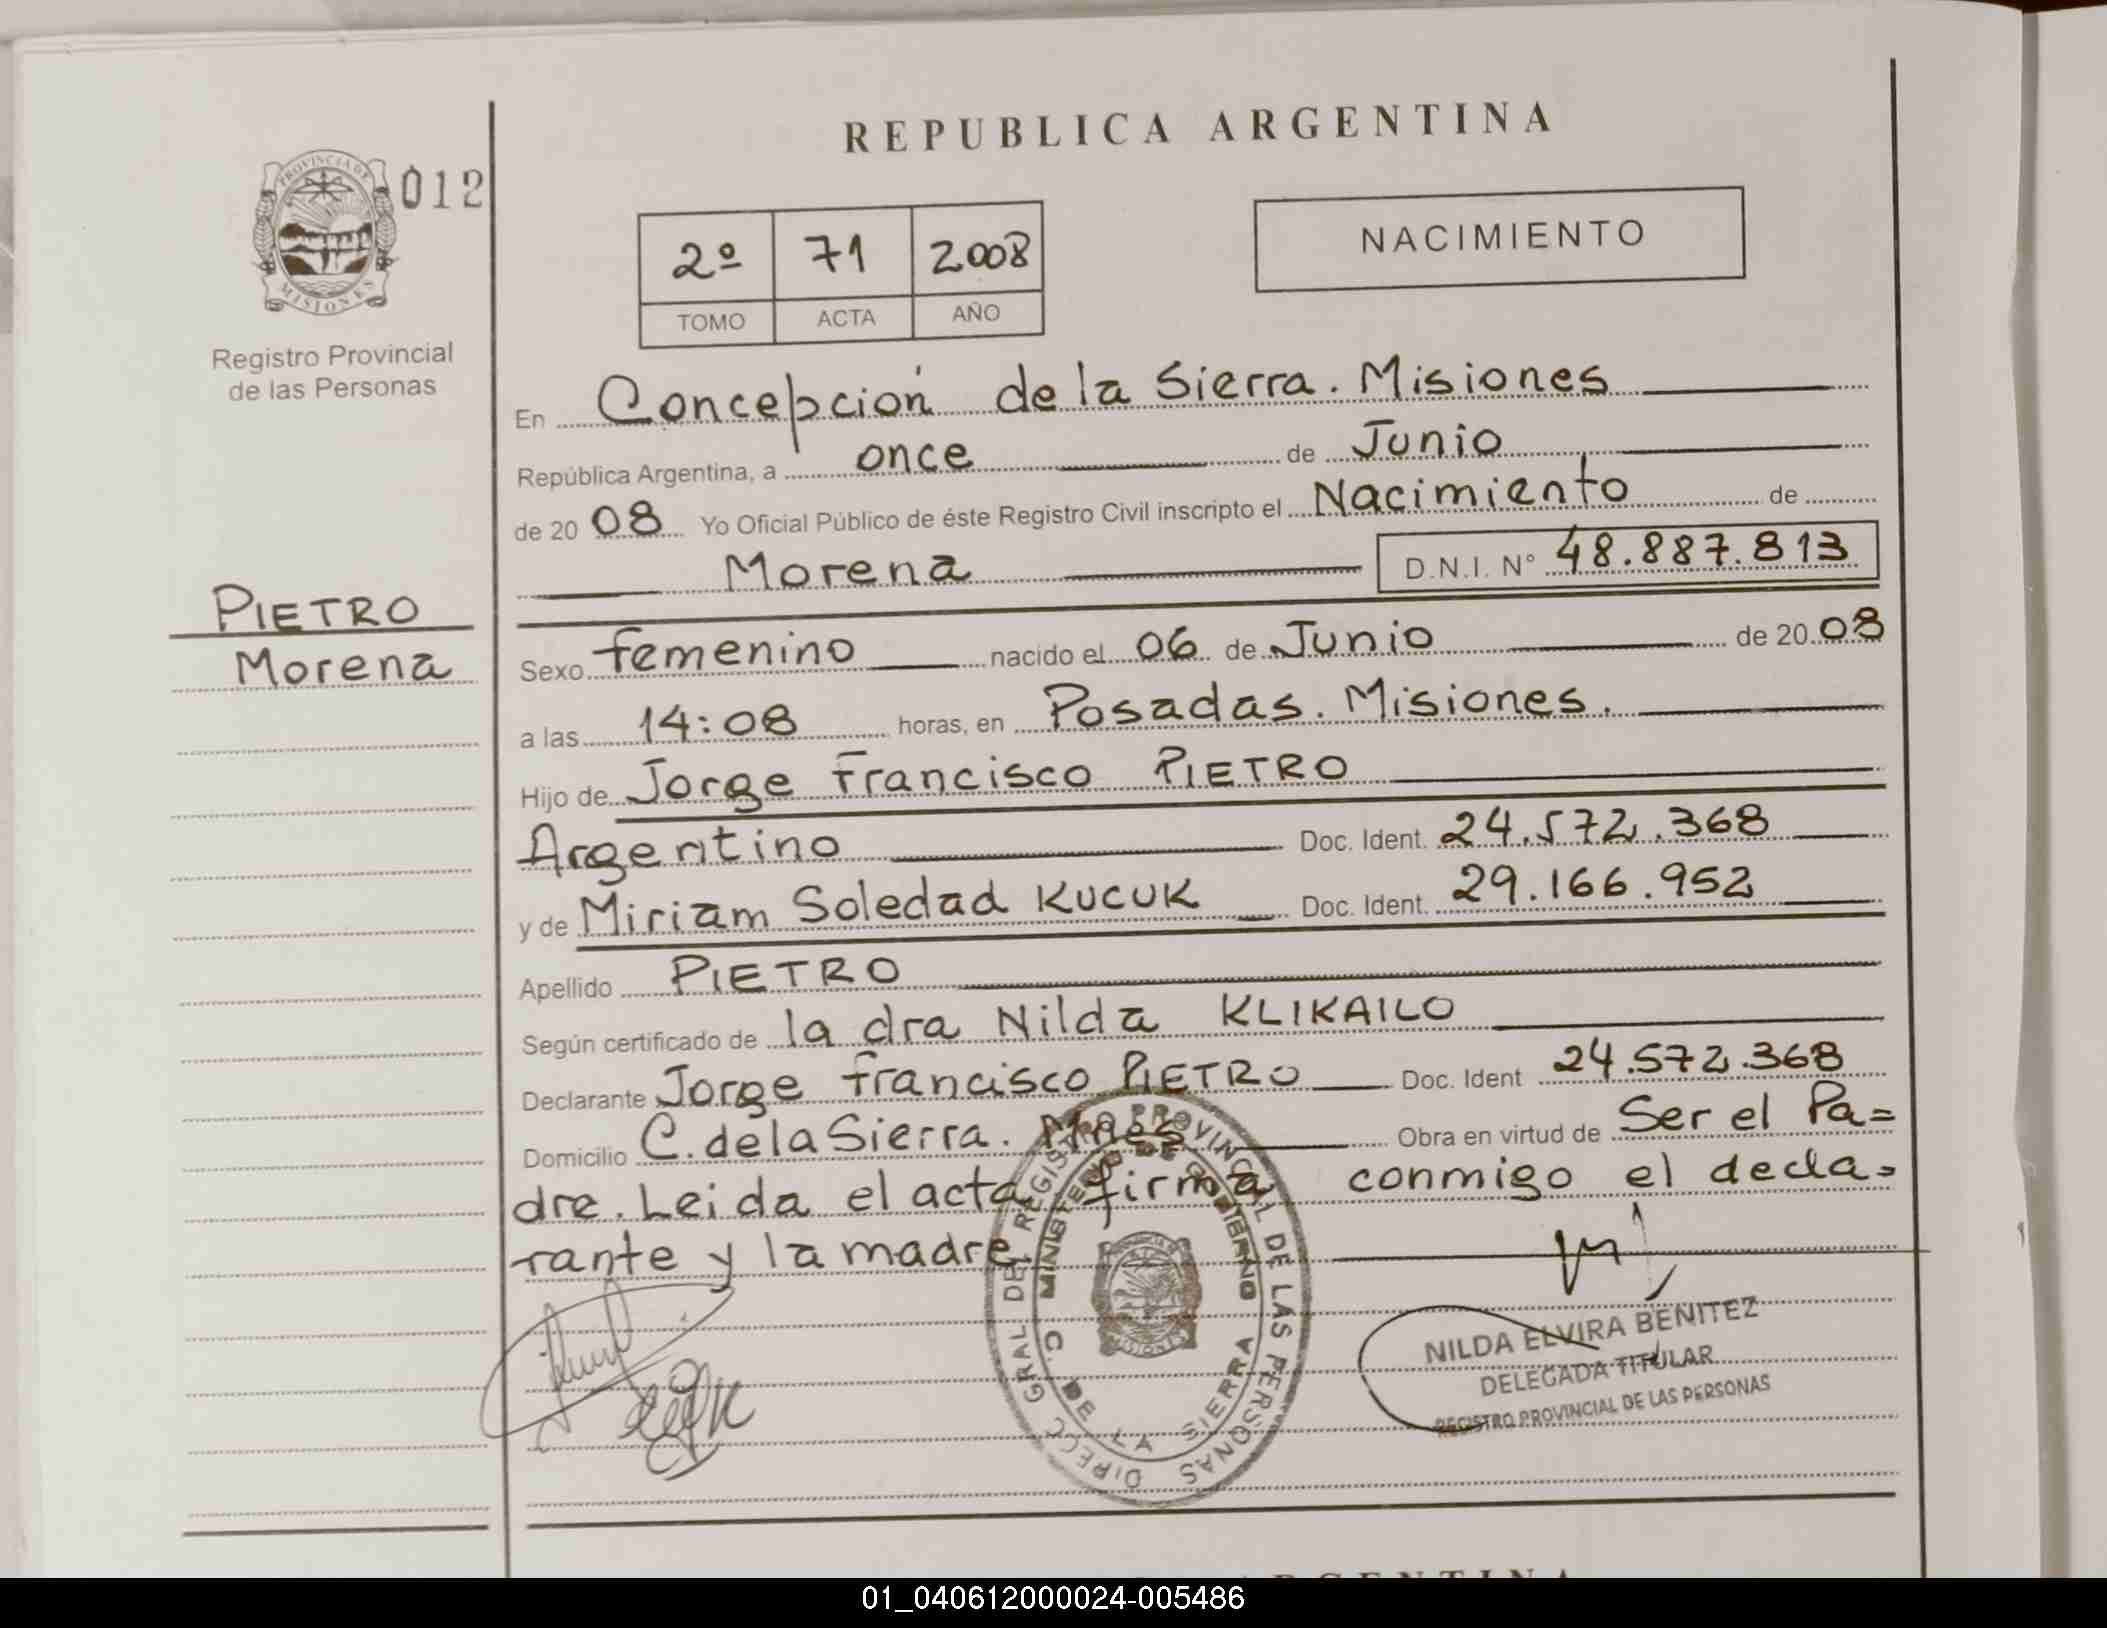 REPUBLICA ARGENTINA
PROVINCIA DE
MISIONES
012
2º 71 2008
TOMO ACTA AÑO
NACIMIENTO
Registro Provincial
de las Personas
En Concepción de la Sierra. Misiones
República Argentina, a once de Junio
de 2008 Yo Oficial Público de éste Registro Civil inscripto el Nacimiento de
Morena D.N.I. Nº 48.887.813
PIETRO
Morena
Sexo femenino nacido el 06 de Junio de 2008
a las 14:08 horas, en Posadas. Misiones.
Hijo de Jorge Francisco PIETRO
Argentino Doc. Ident. 24.572.368
y de Miriam Soledad KUCUK Doc. Ident. 29.166.952
Apellido PIETRO
Según certificado de la dra Nilda KLIKAILO
Declarante Jorge Francisco PIETRO Doc. Ident 24.572.368
Domicilio C. de la Sierra. Mnes Obra en virtud de Ser el Pa=
dre. Leida el acta firma conmigo el decla=
rante y la madre
DIRECC GRAL DEL REGISTRO PROVINCIAL DE LAS PERSONAS
MINISTERIO DE GOBIERNO
C. DE LA SIERRA
MISIONES
NILDA ELVIRA BENITEZ
DELEGADA TITULAR
REGISTRO PROVINCIAL DE LAS PERSONAS
ARGENTINA
01_040612000024-005486